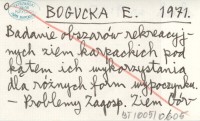 BOGUCKA E. 1971.
Badanie obszarów rekreacyj-
nych ziem karpackich pod
kątem ich wykorzystania
dla różnych form wypoczynku.
– Problemy Zagosp. Ziem Gór-